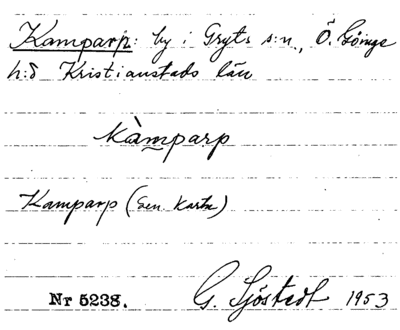 Kamparp: by i Gryts s:n, Ö. Göinge
h:d Kristianstads län
kàmparp
Kamparp (Gen. Karta)
Nr 5238. G. Sjöstedt 1953